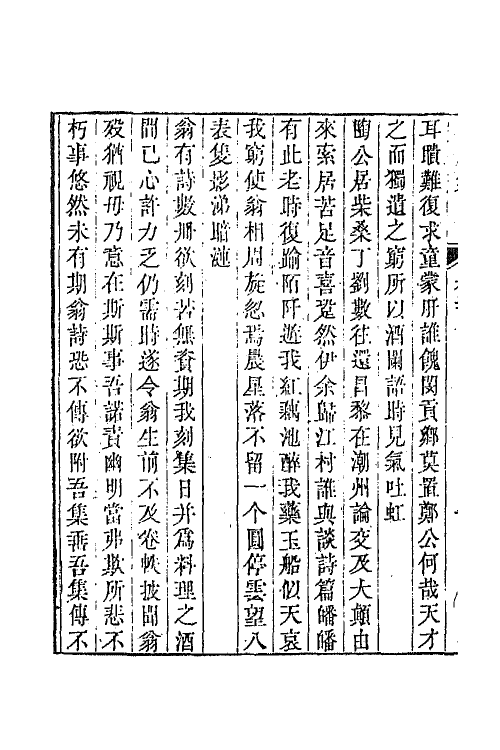 耳聵難復求童蒙肝誰餽閔貢鄉莫置鄭公何哉天才
之而獨遺之窮所以酒闌語時見氣吐虹
陶公居柴桑丁劉數往還昌黎在潮州論交及大顛由
來索居苦足音喜跫然伊余歸江村誰與談詩篇皤皤
有此老時復踰陌阡遊我紅藕池醉我藥玉船似天哀
我窮使翁相周旋忽焉晨星落不留一个圓停雲望八
表隻影涕暗漣
翁有詩數冊欲刻苦無貲期我刻集日并為料理之酒
間已心許力乏仍需時遂令翁生前不及卷帙披聞翁
歿猶視毋乃意在斯斯事吾諾責幽明當弗欺所悲不
朽事悠然未有期翁詩恐不傳欲附吾集乖吾集傳不